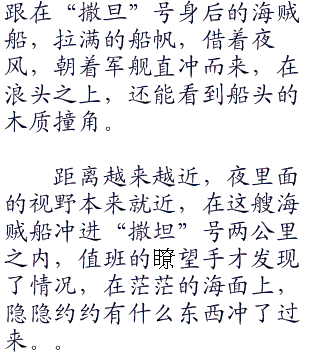 跟在“撒旦”号身后的海贼
船，拉满的船帆，借着夜
风，朝着军舰直冲而来，在
浪头之上，还能看到船头的
木质撞角。
距离越来越近，夜里面
的视野本来就近，在这艘海
贼船冲进“撒坦”号两公里
之内，值班的瞭望手才发现
了情况，在茫茫的海面上，
隐隐约约有什么东西冲了过
来。。